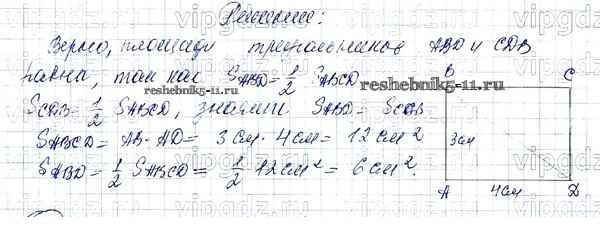 Решение:
Верно, площади треугольников ABD и CDB
равны, так как S_ABD = 1/2 S_ABCD
S_CDB = 1/2 S_ABCD, значит S_ABD = S_CDB
S_ABCD = AB · AD = 3 см · 4 см = 12 см²
S_ABD = 1/2 S_ABCD = 1/2 12 см² = 6 см².
B C
3 см
A 4 см D
reshebnik5-11.ru
reshebnik5-11.ru
vipgdz.ru